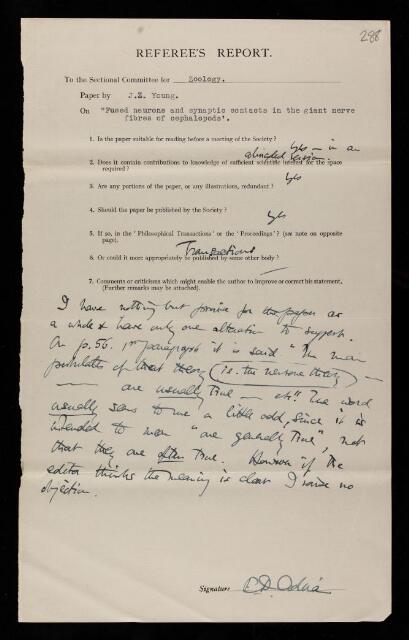 288
REFEREE'S REPORT.
To the Sectional Committee for Zoology.
Paper by J.Z. Young.
On "Fused neurons and synaptic contacts in the giant nerve
fibres of cephalopods".
1. Is the paper suitable for reading before a meeting of the Society?
Yes — in an
abridged version.
2. Does it contain contributions to knowledge of sufficient scientific interest for the space
required?
Yes
3. Are any portions of the paper, or any illustrations, redundant?
4. Should the paper be published by the Society?
Yes
5. If so, in the 'Philosophical Transactions' or the 'Proceedings'? (see note on opposite
page).
Transactions
6. Or could it more appropriately be published by some other body?
—
7. Comments or criticisms which might enable the author to improve or correct his statement.
(Further remarks may be attached).
I have nothing but praise for the paper as
a whole & have only one alteration to suggest.
On p.56. 1st paragraph it is said "The main
postulates of that theory (i.e. the neurone theory) —
— are usually true — etc" The word
usually seems to me a little odd, since it is
intended to mean "are generally true", not
that they are often true. However if the
editor thinks the meaning is clear I raise no
objection.
Signature